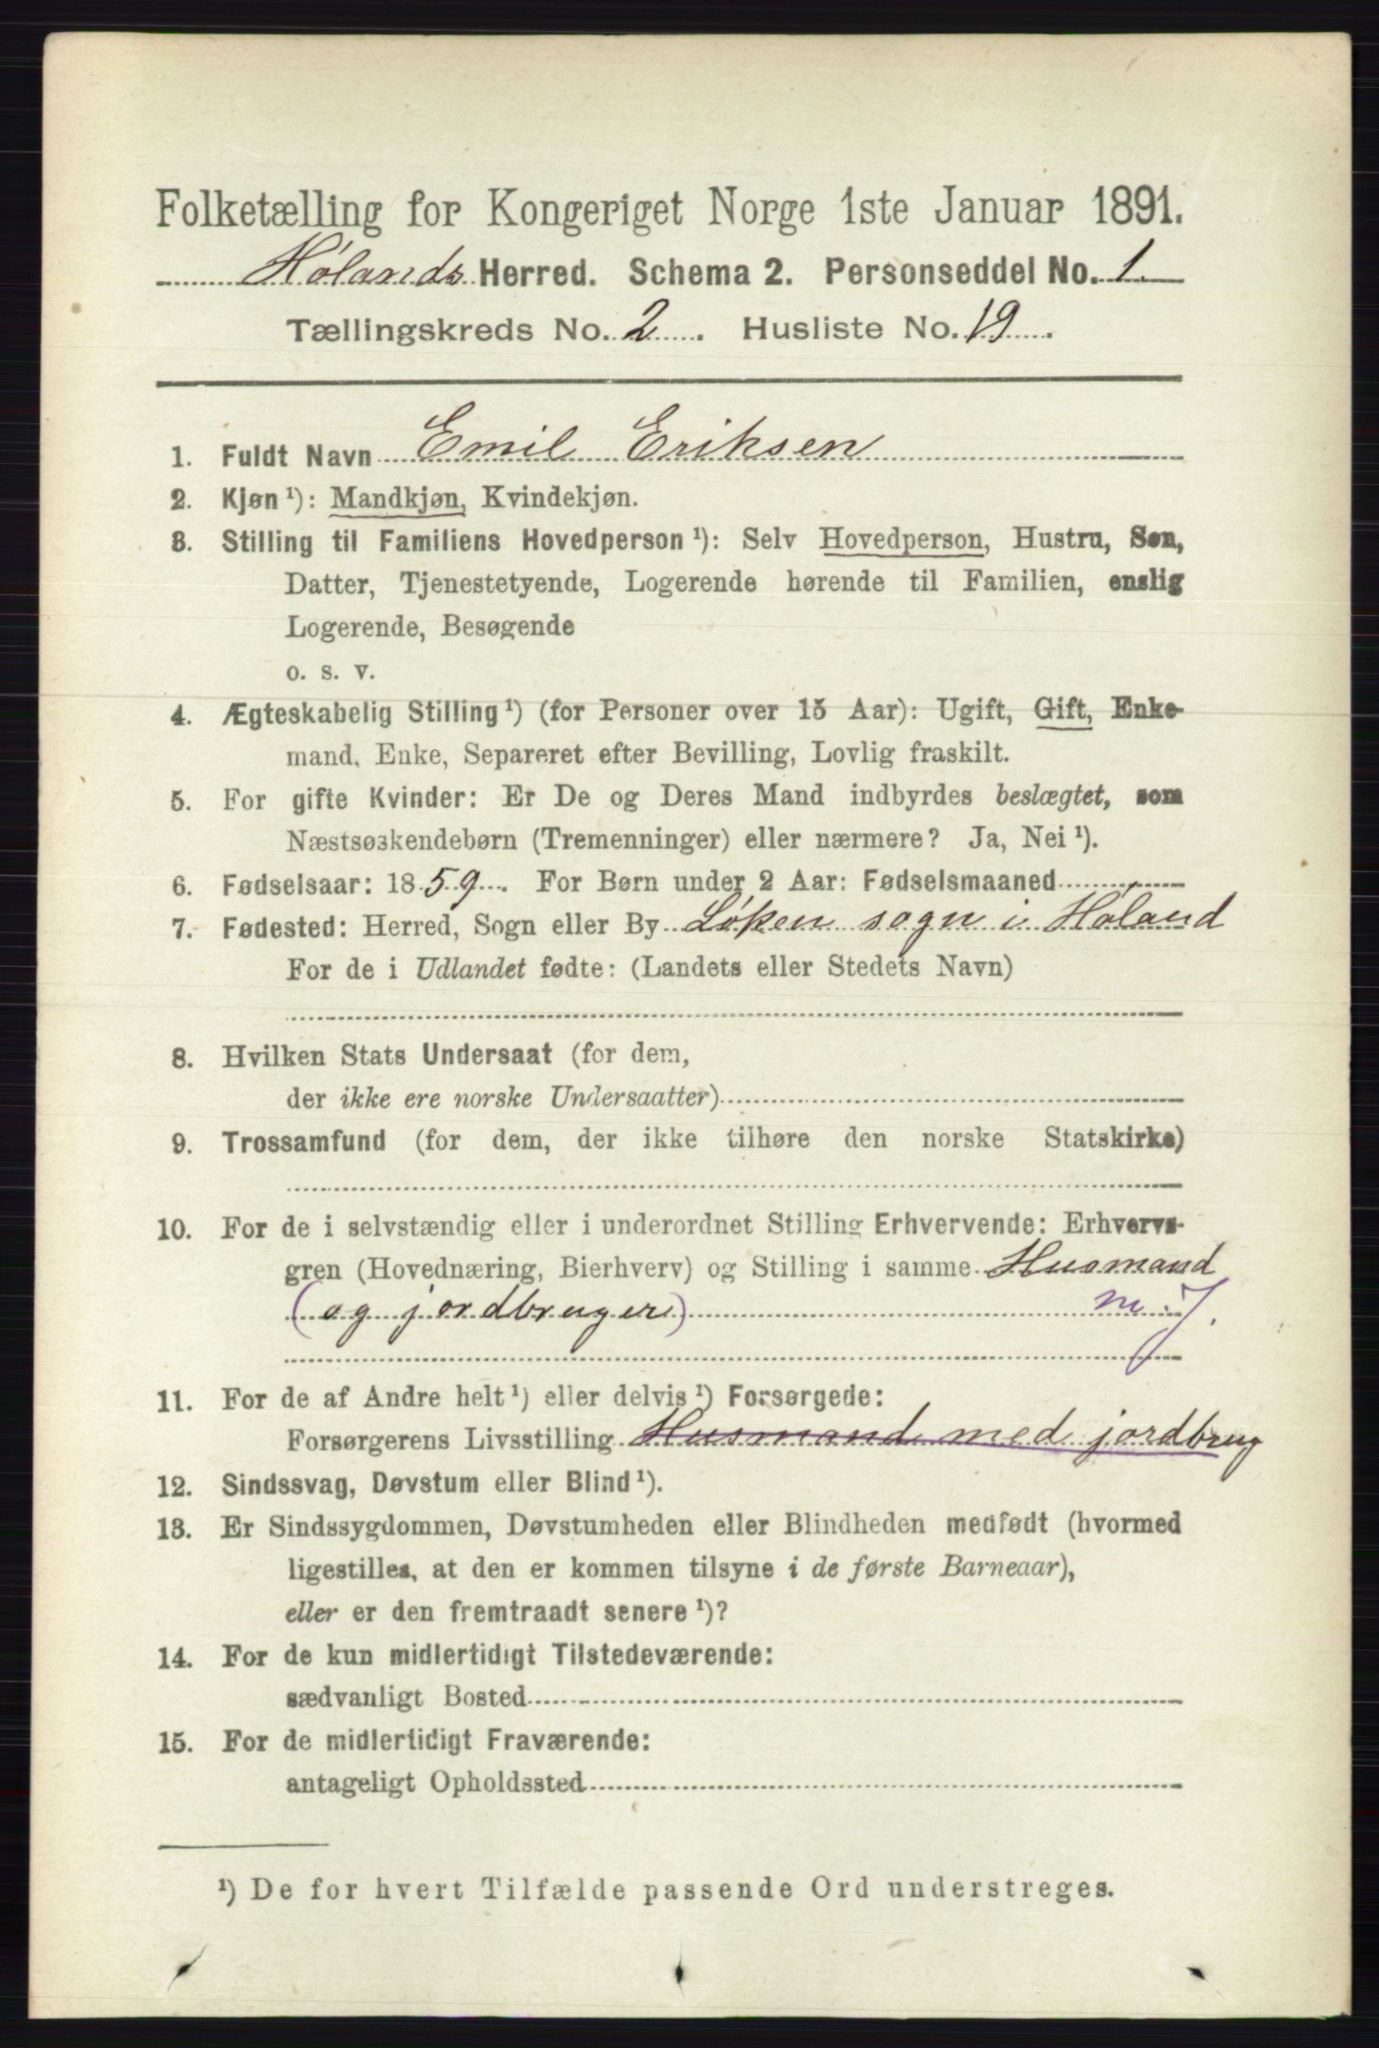 Folketælling for Kongeriget Norge 1ste Januar 1891.
Hølands Herred. Schema 2. Personseddel No. 1.
Tællingskreds No. 2. Husliste No. 19.
1. Fuldt Navn Emil Eriksen
2. Kjøn ¹): Mandkjøn, Kvindekjøn.
3. Stilling til Familiens Hovedperson ¹): Selv Hovedperson, Hustru, Søn,
Datter, Tjenestetyende, Logerende hørende til Familien, enslig
Logerende, Besøgende
o. s. v.
4. Ægteskabelig Stilling ¹) (for Personer over 15 Aar): Ugift, Gift, Enke-
mand, Enke, Separeret efter Bevilling, Lovlig fraskilt.
5. For gifte Kvinder: Er De og Deres Mand indbyrdes beslægtet, som
Næstsøskendebørn (Tremenninger) eller nærmere? Ja, Nei ¹).
6. Fødselsaar: 1859. For Børn under 2 Aar: Fødselsmaaned
7. Fødested: Herred, Sogn eller By Løken sogn i Høland
For de i Udlandet fødte: (Landets eller Stedets Navn)
8. Hvilken Stats Undersaat (for dem,
der ikke ere norske Undersaatter)
9. Trossamfund (for dem, der ikke tilhøre den norske Statskirke)
10. For de i selvstændig eller i underordnet Stilling Erhvervende: Erhvervs-
gren (Hovednæring, Bierhverv) og Stilling i samme Husmand
(og jordbruger) m. J.
11. For de af Andre helt ¹) eller delvis ¹) Forsørgede:
Forsørgerens Livsstilling Husmand med jordbrug
12. Sindssvag, Døvstum eller Blind ¹).
13. Er Sindssygdommen, Døvstumheden eller Blindheden medfødt (hvormed
ligestilles, at den er kommen tilsyne i de første Barneaar),
eller er den fremtraadt senere ¹)?
14. For de kun midlertidigt Tilstedeværende:
sædvanligt Bosted
15. For de midlertidigt Fraværende:
antageligt Opholdssted
¹) De for hvert Tilfælde passende Ord understreges.